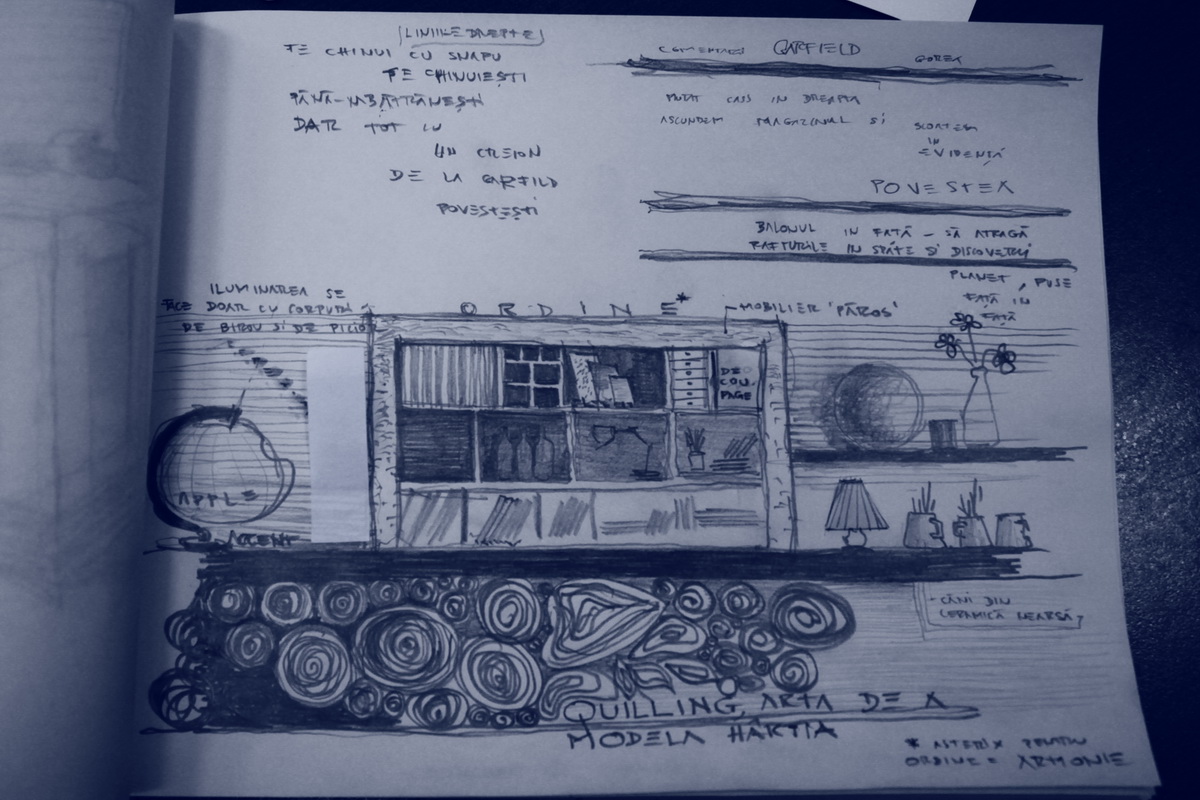 LINIILE DREPTE
TE CHINUI CU SNAPU
TE CHINUIEȘTI
PÂNĂ-MBĂTRÂNEȘTI
DAR TOT CU
UN CREION
DE LA GARFILD
POVESTEȘTI
COMENTARII GARFIELD GOREA
MUTAT CASS IN DREAPTA
ASCUNDEM MAGAZINUL SI SCOATEM
IN
EVIDENȚĂ
POVESTEA
BALONUL IN FATĂ - SĂ ATRAGĂ
RAFTURILE IN SPATE SI DISCOVERY
PLANET, PUSE
FATĂ IN
FATĂ
ILUMINAREA SE
FACE DOAR CU CORPURI
DE BIROU SI DE PICIOR
ORDINE*
MOBILIER 'PĂROS'
DE
COU.
PAGE
APPLE
ACCENT
CĂNI DIN
CERAMICĂ NEARSĂ
QUILLING, ARTA DE A
MODELA HÂRTIA
* ASTERIX PENTRU
ORDINE = ARMONIE